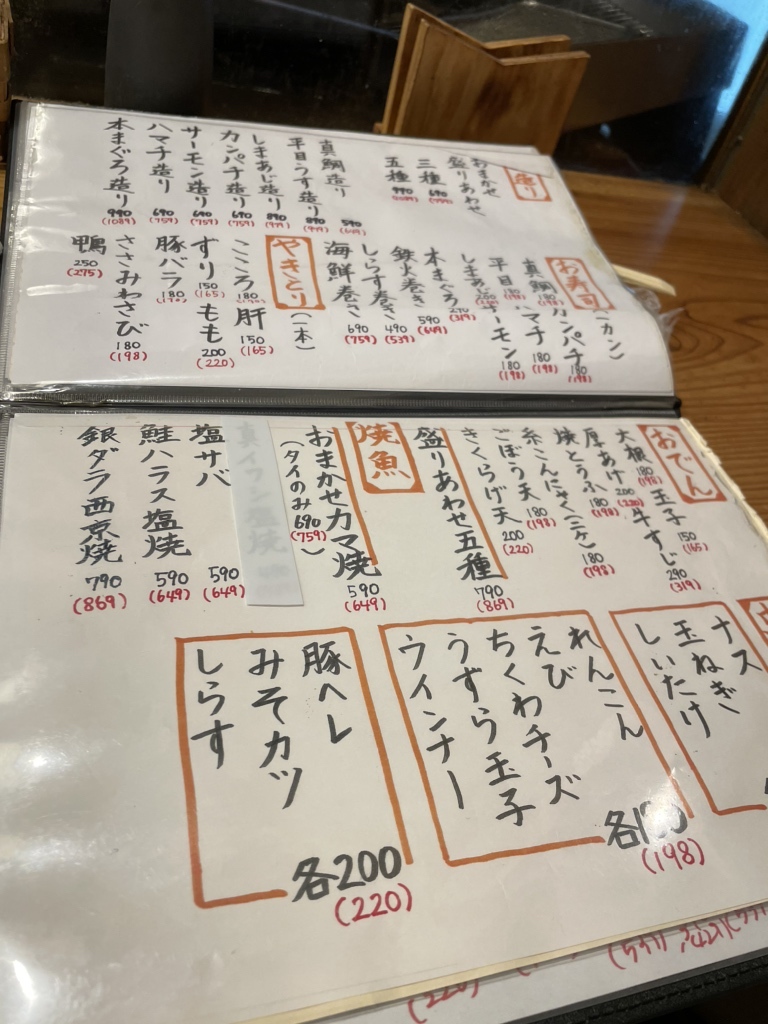 造り
おまかせ
盛りあわせ
三種 690 (759)
五種 990 (1089)
真鯛造り 590 (649)
平目うす造り 890 (979)
しまあじ造り 890 (979)
カンパチ造り 690 (759)
サーモン造り 690 (759)
ハマチ造り 690 (759)
本まぐろ造り 990 (1089)
お寿司 (一カン)
真鯛 180 (198) カンパチ 180 (198)
平目 180 (198) ハマチ 180 (198)
しまあじ 200 サーモン 180 (198)
本まぐろ 290 (319)
鉄火巻き 590 (649)
しらす巻き 490 (539)
海鮮巻き 690 (759)
やきとり (一本)
こころ 180 肝 150 (165)
ずり 150 (165) もも 200 (220)
豚バラ 180
ささみわさび 180 (198)
鴨 250 (275)
おでん
大根 180 (198) 玉子 150 (165)
厚あげ 200 (220) 牛すじ 290 (319)
焼とうふ 180 (198)
糸こんにゃく(二ケ) 180 (198)
ごぼう天 180 (198)
きくらげ天 200 (220)
盛りあわせ五種 790 (869)
焼魚
おまかせカマ焼 590 (649)
(タイのみ 690 (759))
塩サバ 590 (649)
鮭ハラス塩焼 590 (649)
銀ダラ西京焼 790 (869)
ナス
玉ねぎ
しいたけ
れんこん
えび
ちくわチーズ
うずら玉子
ウインナー
各180
(198)
豚ヘレ
みそカツ
しらす
各200
(220)